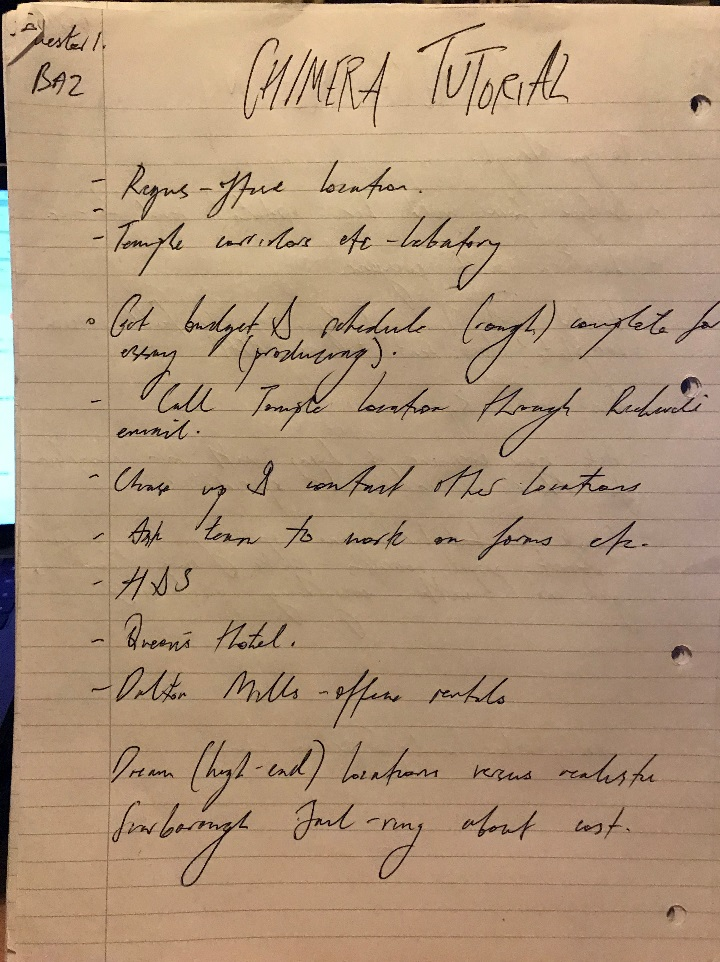 Semester 1.
BA2
CHIMERA TUTORIAL
- Regus - office location.
-
- Temple corridors etc - labatory
• Got budget & schedule (rough) complete for
essay (producing).
- Call Temple location through
email.
- Chase up & contact other locations
- Ask team to work on forms etc.
- H&S
- Queens Hotel.
- Dalton Mills - office rentals
Dream (high-end) locations versus realistic
Scarborough Jail - ring about cost.